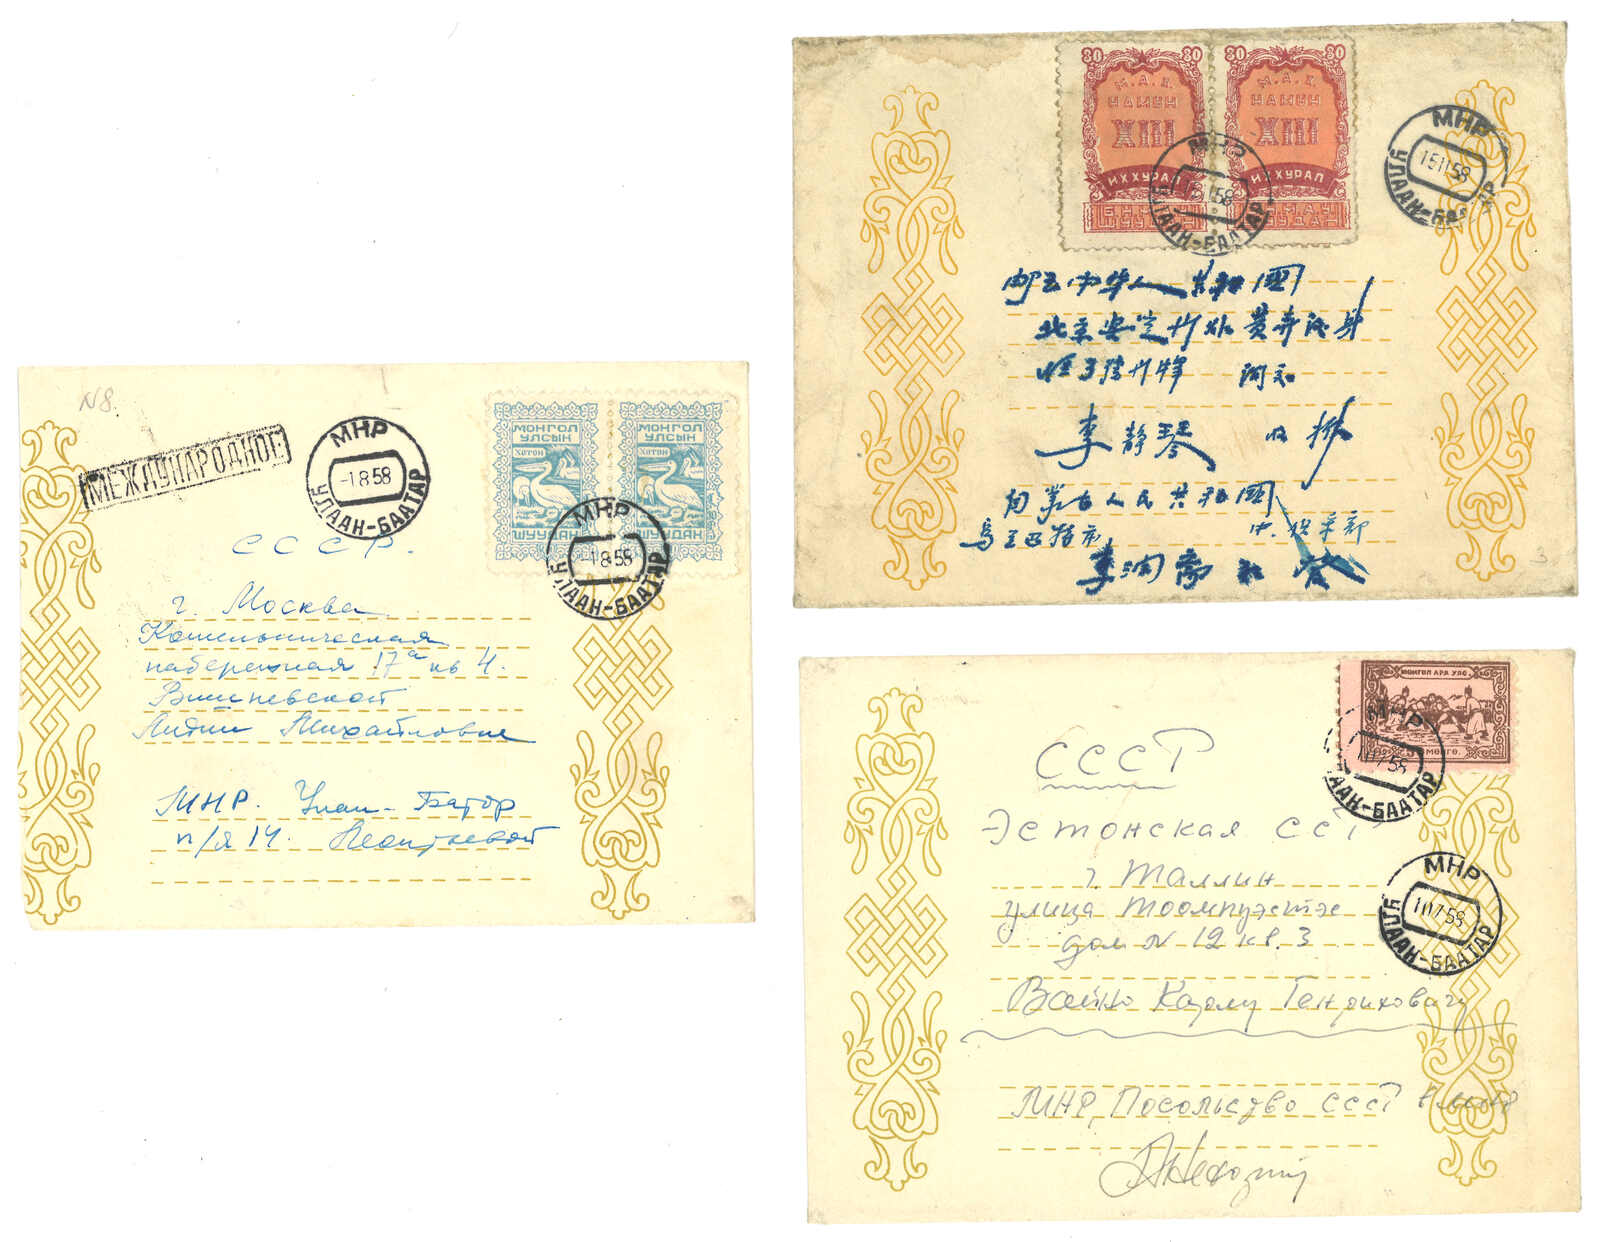 N8.
МЕЖДУНАРОДНОЕ
МНР
-1 8 58
УЛААН-БААТАР
МОНГОЛ
УЛСЫН
ХОТОН
ШУУДАН
МОНГОЛ
УЛСЫН
ХОТОН
ШУУДАН
МНР
-1 8 58
УЛААН-БААТАР
СССР.
г. Москва
Котельническая
набережная 17а кв 4.
Вишневской
Лидии Михайловне
МНР. Улан-Батор
п/я 14. Леонтьевой
80 80
М.А.Х.
НАМЫН
XIII
ИХ ХУРАЛ
80 80
М.А.Х.
НАМЫН
XIII
ИХ ХУРАЛ
МНР
58
УЛААН-БААТАР
МНР
15 11 58
УЛААН-БААТАР
中华人共和国
北京安定门外黄寺
李静琴
蒙古人民共和国
乌兰巴托市
李润
3
МОНГОЛ АРА УЛС
МӨНГӨ.
МНР
58
ЛААН-БААТАР
СССР
Эстонская ССР
г. Таллин
улица Тоомпуэстэ
дом N 12 кв. 3
МНР
1 07 58
УЛААН-БААТАР
Вайно Карлу Генриховичу
МНР, Посольство СССР